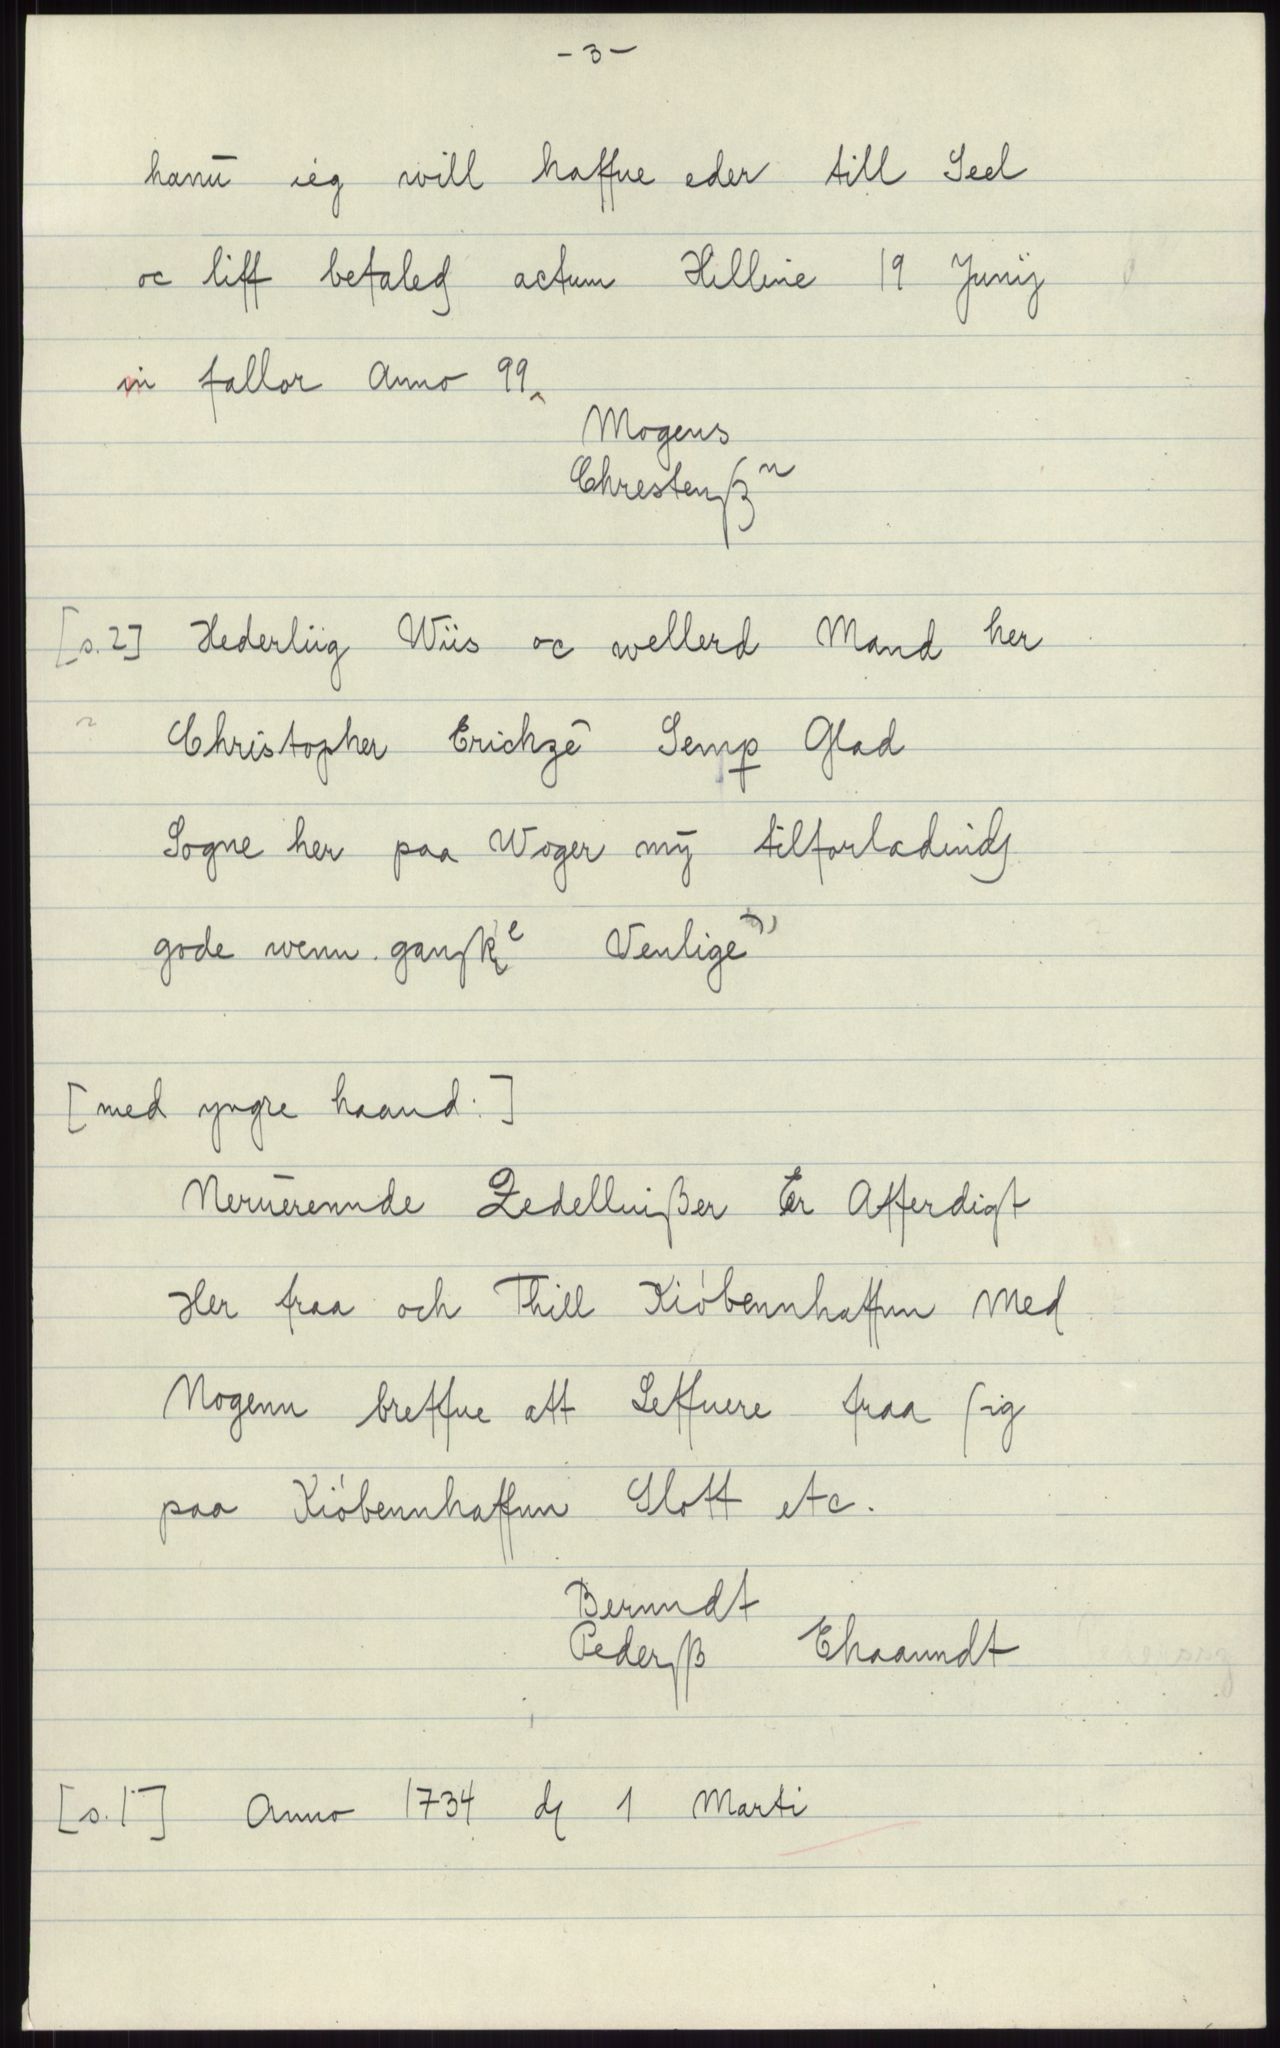 - 3 -
hanū ieg will haffue eder till Seel
oc liff befaled actum Hilleuie 19 Junij
in fallor Anno 99
Mogens
Chrestenſzⁿ
[s. 2] Hederliig Wiis oc wellerd Mand her
Christopher Erichzē Semp Glad
Sogne her paa Woger mÿ tilforladinds
gode wenn ganſkᵉ Venlige
[med yngre haand:]
Neruerennde Zedelluißer Er Afferdigt
Her fraa och Thill Kióbennhaffnn Med
Nogenn breffue att Leffuere fraa ſig
paa Kióbennhaffnn Slott etc.
Bernndt
Pederſß Ehaanndt
[s. 1] Anno 1734 d 1 Marti